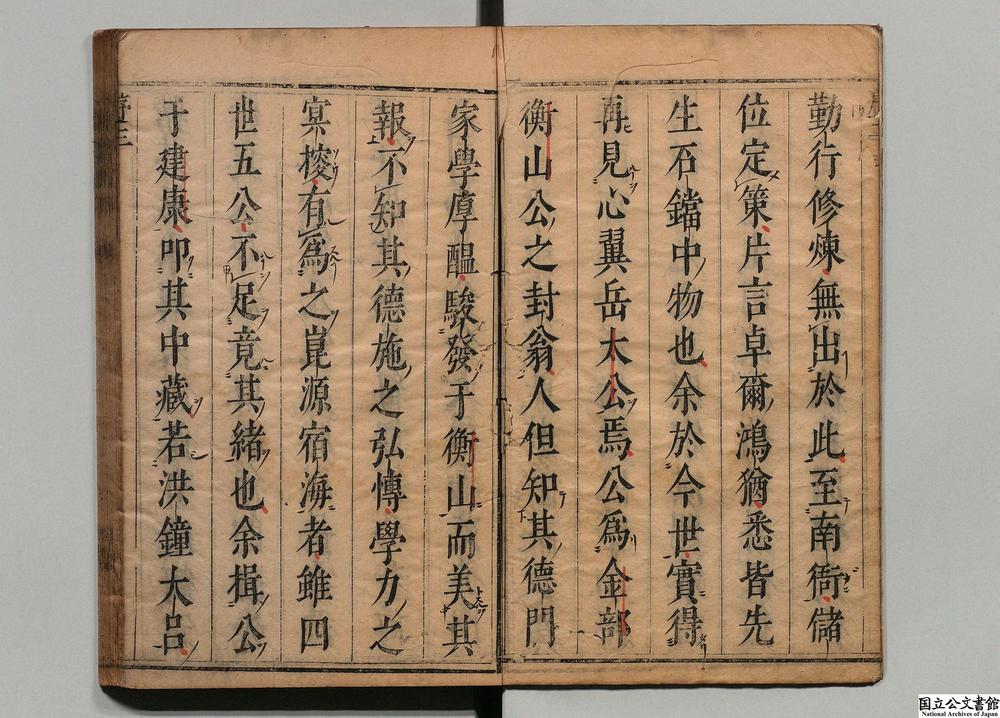 勤行修煉無出於此至南衙儲
位定策片言卓爾鴻猷悉皆先
生石鐺中物也余於今世實得
再見心翼岳大公焉公爲金部
衡山公之封翁人但知其德門
家學厚醞駿發于衡山而美其
報不知其德施之弘慱學力之
㝠椄有爲之崑源宿海者雖四
世五公不足竟其緒也余揖公
于建康叩其中藏若洪鐘大呂
国立公文書館
National Archives of Japan